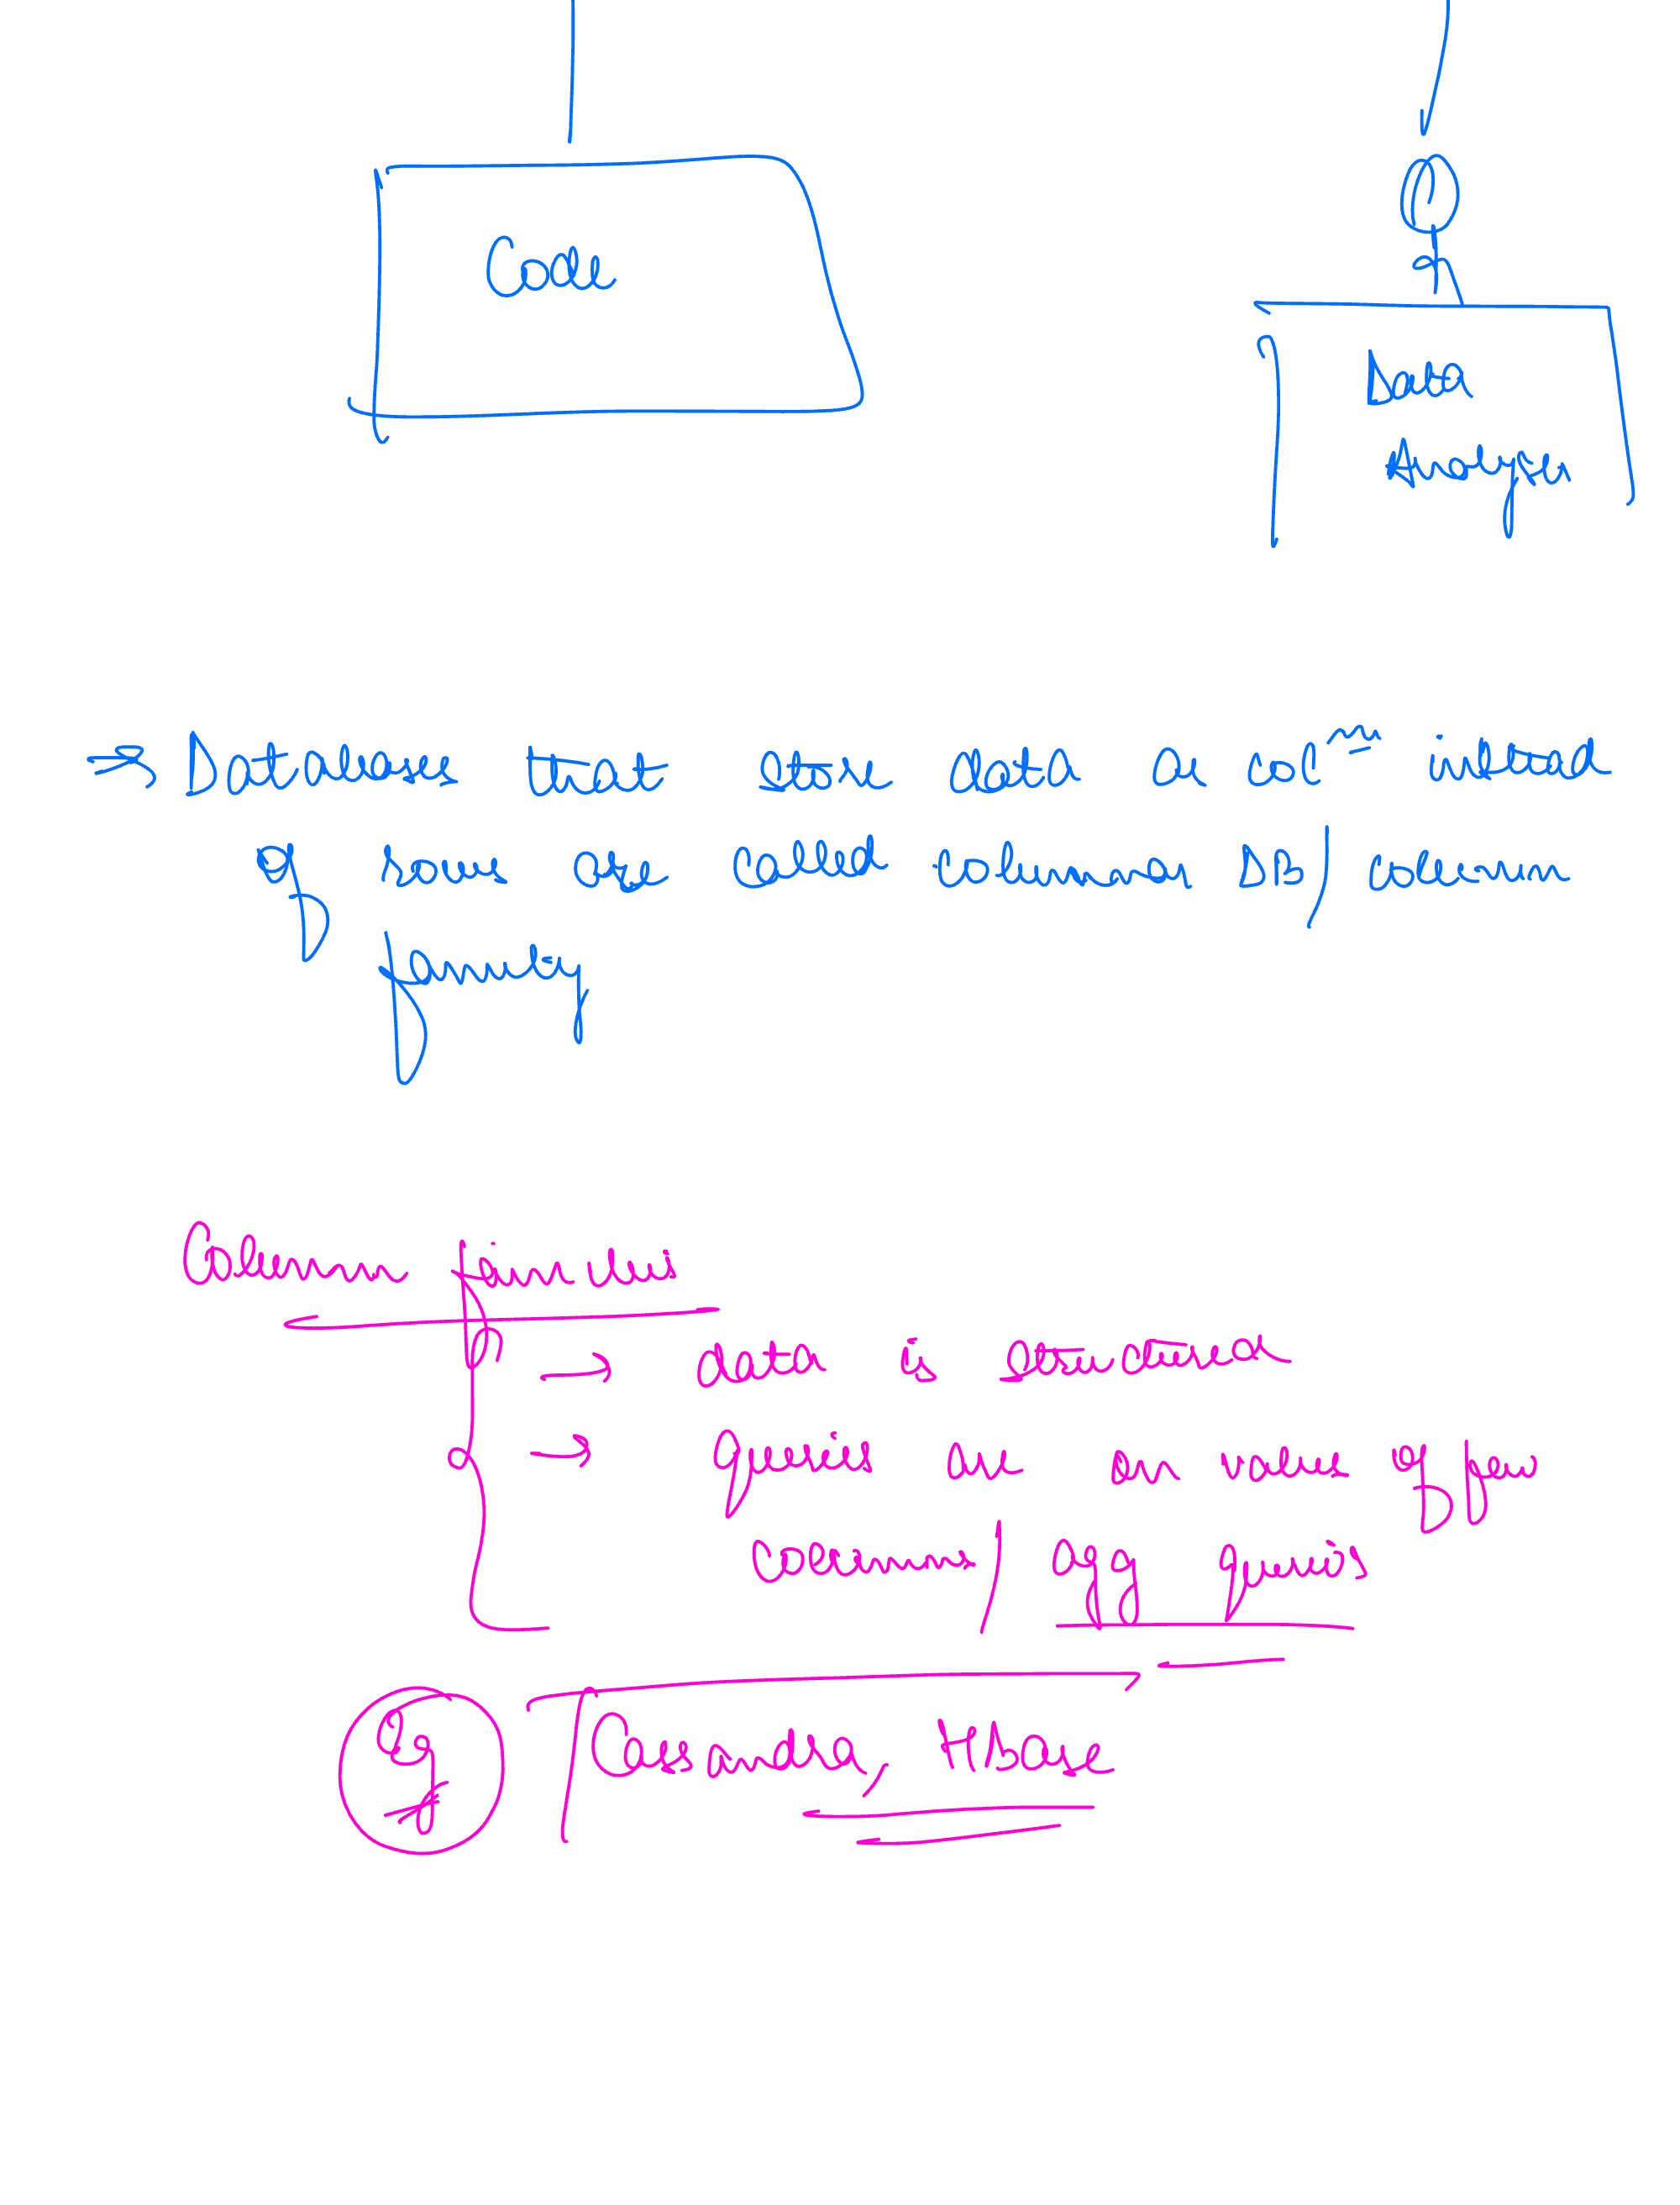 Code
Data
Analysis
→ Databases that store data as colⁿ instead
of rows are called columnar DB/ column
family
Column families
→ data is structured
→ queries are on values of few
columns/ agg queries
Eg Cassandra, HBase